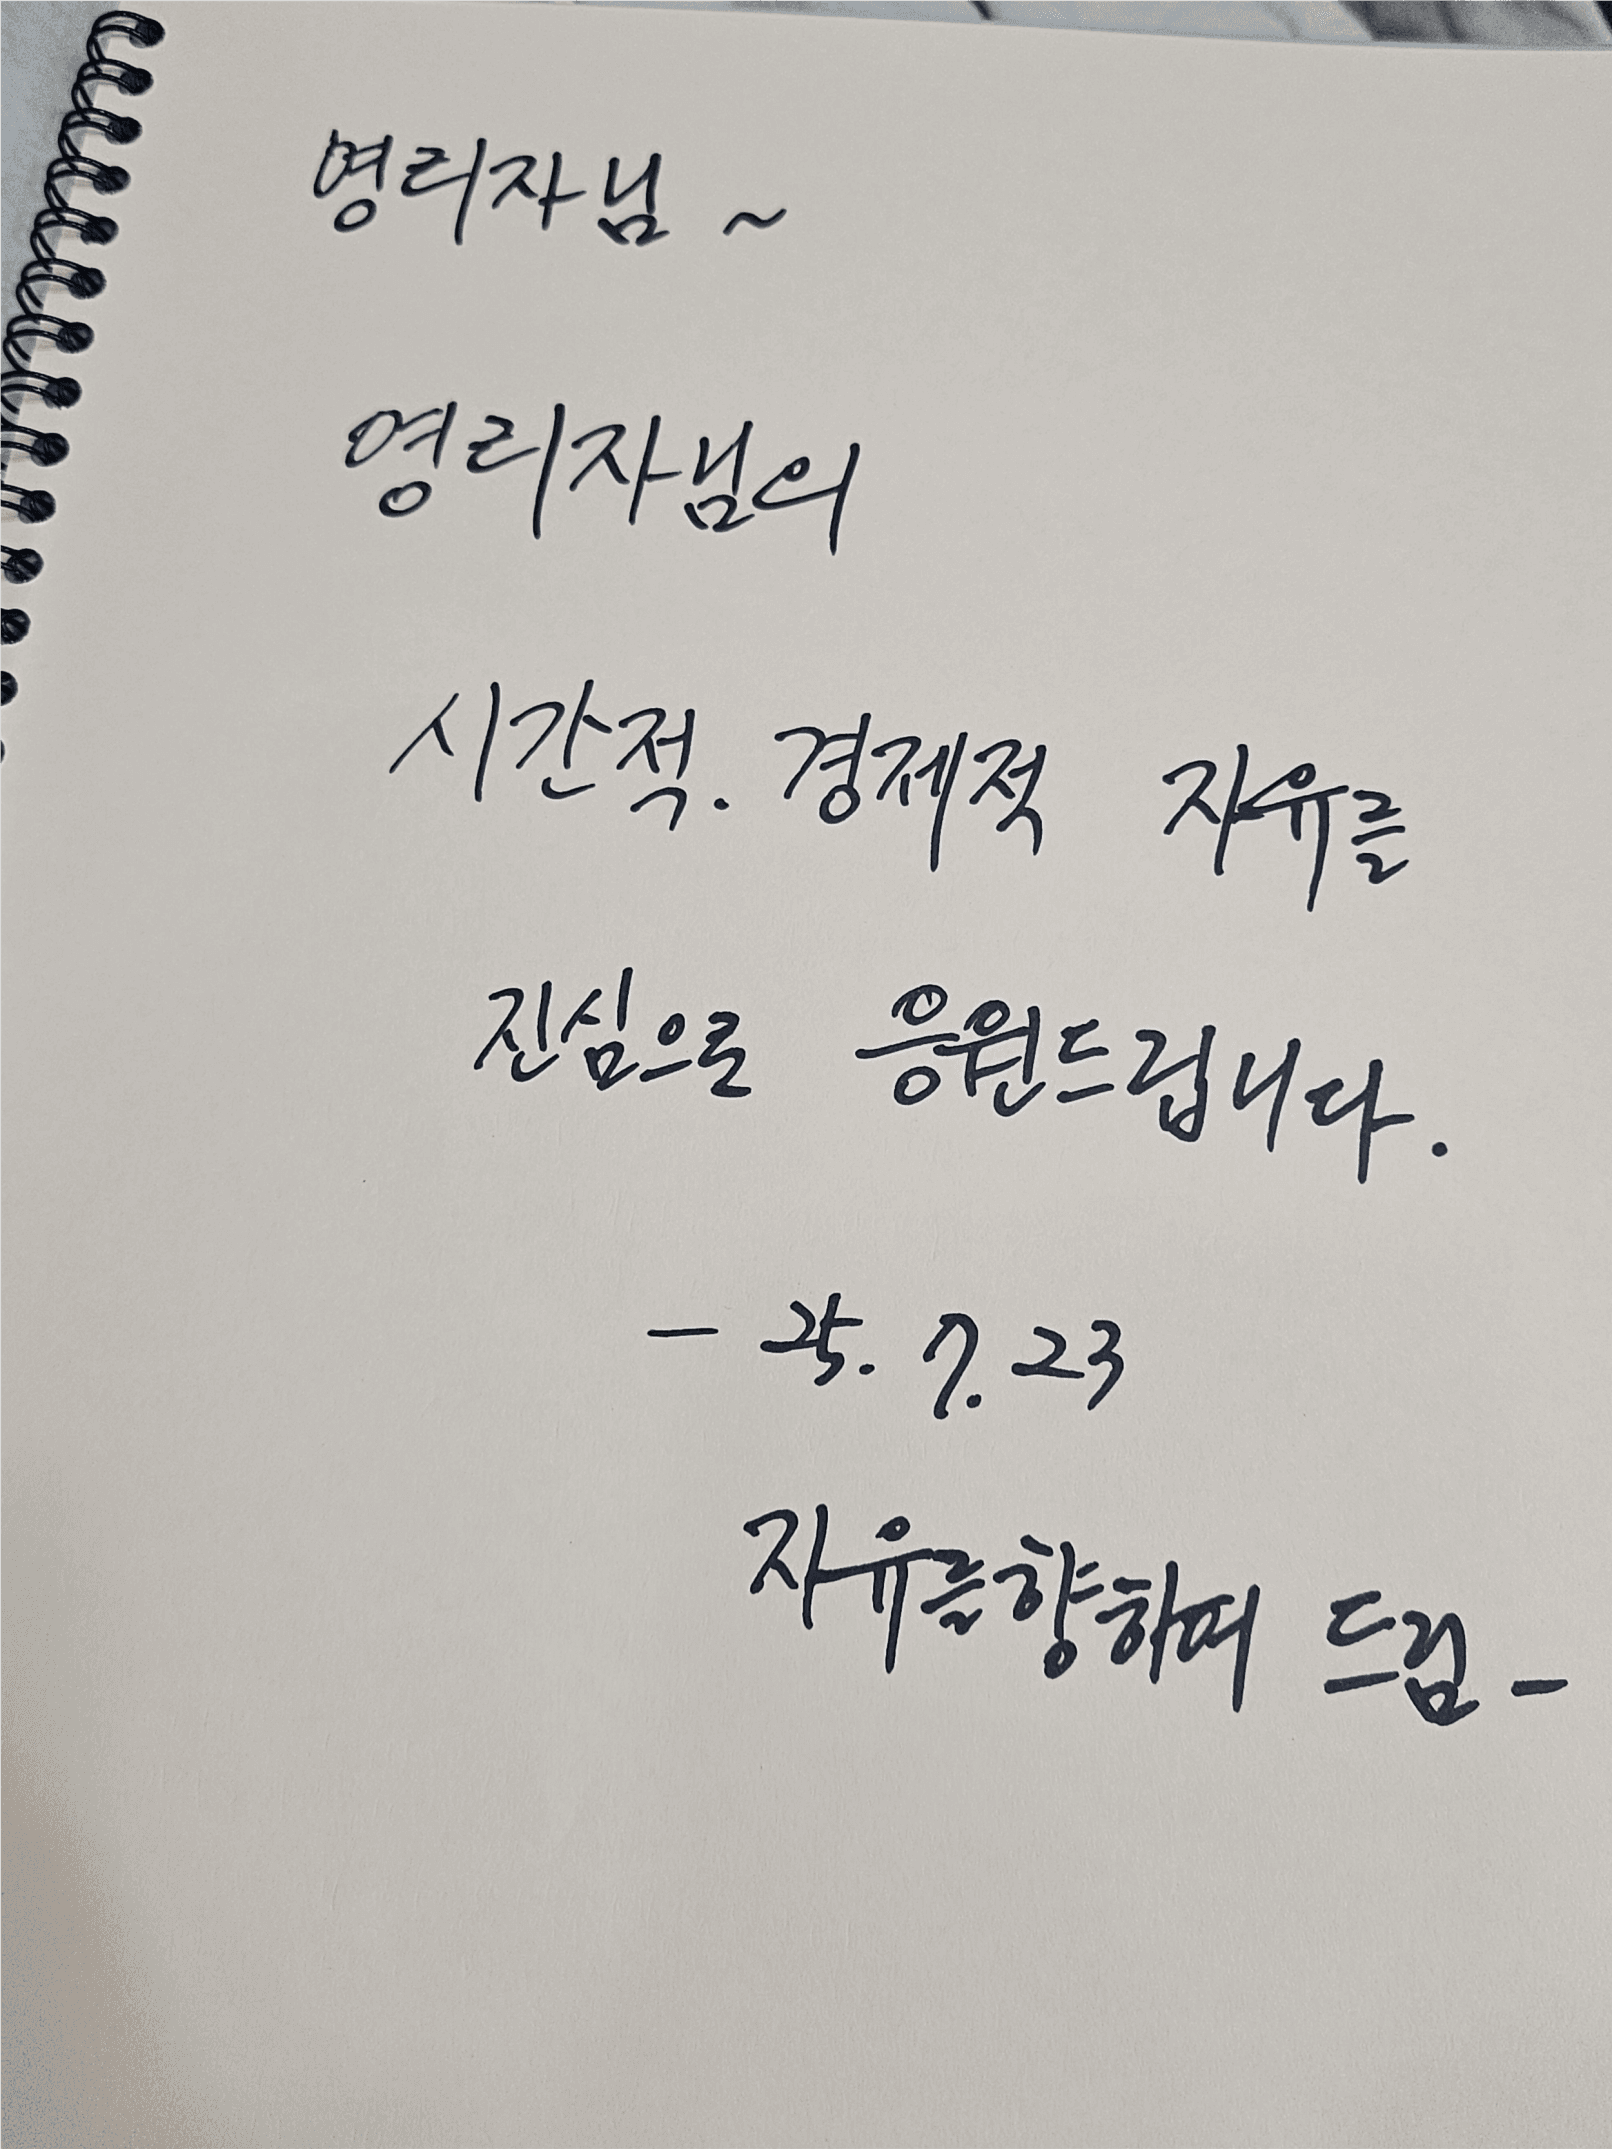 영리자님 ~
영리자님의
시간적. 경제적 자유를
진심으로 응원드립니다.
- 25. 7. 23
자유를향하며 드림 -